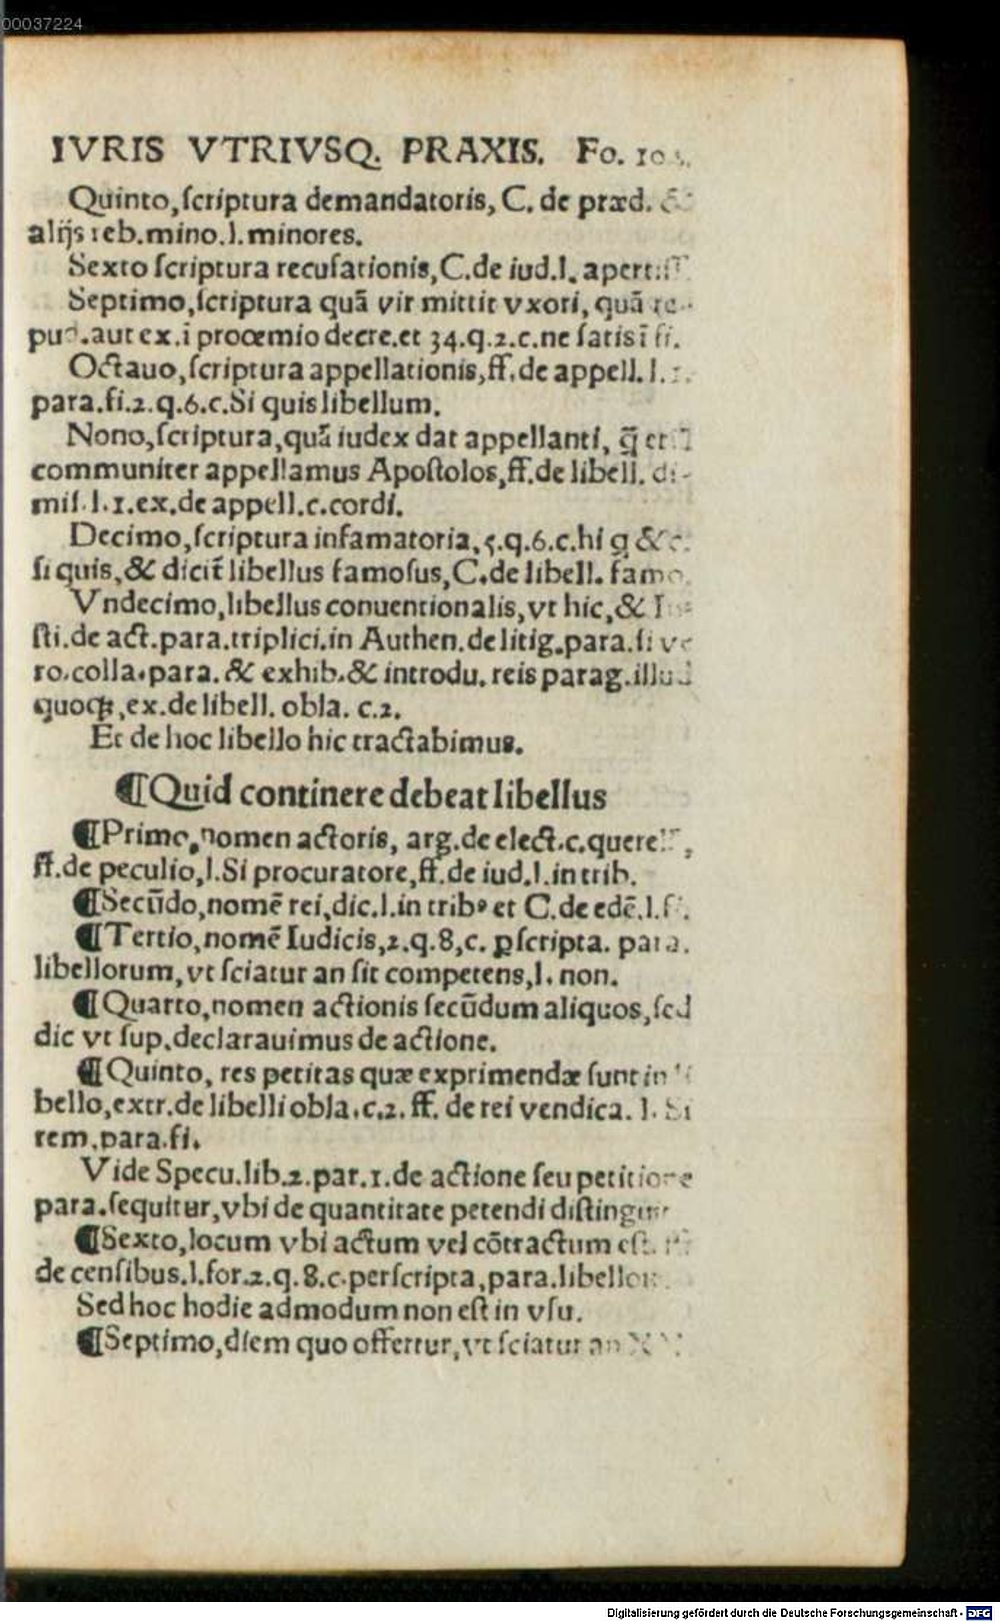 00037224
IVRIS VTRIVSQ. PRAXIS. Fo.
Quinto, ſcriptura demandatoris, C. de præd. &
alijs reb.mino.l.minores.
Sexto ſcriptura recuſationis, C.de iud.l. apertiſſ
Septimo, ſcriptura quā vir mittit vxori, quā re-
pud.aut ex.i prooemio decre.et 34.q.2.c.ne ſatis ī fi.
Octauo, ſcriptura appellationis, ff.de appell. l.1.
para.fi.2.q.6.c.Si quis libellum.
Nono, ſcriptura, quā iudex dat appellanti, q̄
communiter appellamus Apoſtolos, ff.de libell. di-
miſ.l.1.ex.de appell.c.cordi.
Decimo, ſcriptura infamatoria, 5.q.6.c.hi q &c.
ſi quis, & dicit̄ libellus famoſus, C.de libell. famo.
Vndecimo, libellus conuentionalis, vt hic, & In-
ſti.de act.para.triplici.in Authen.de litig.para.ſi ve
ro.colla.para. & exhib.& introdu. reis parag.illud
quoqꝫ, ex.de libell. obla. c.2.
Et de hoc libello hic tractabimus.
¶Quid continere debeat libellus
¶Primo, nomen actoris, arg.de elect.c.querell,
ff.de peculio, l.Si procuratore, ff.de iud.l.in trib.
¶Secūdo, nomē rei, dic.l.in tribꝰ et C.de edē.l.fi.
¶Tertio, nomē Iudicis, 2.q.8, c. ꝑſcripta. para.
libellorum, vt ſciatur an ſit competens, l. non.
¶Quarto, nomen actionis ſecūdum aliquos, ſed
dic vt ſup.declarauimus de actione.
¶Quinto, res petitas quæ exprimendæ ſunt in li
bello, extr.de libelli obla.c.2. ff. de rei vendica. l. Si
rem.para.fi.
Vide Specu.lib.2.par.1.de actione ſeu petitione
para.ſequitur, vbi de quantitate petendi diſtinguit
¶Sexto, locum vbi actum vel cōtractum eſt.
de cenſibus.l.for.2.q.8.c.perſcripta, para.libellor.
Sed hoc hodie admodum non eſt in vſu.
¶Septimo, diem quo offertur, vt ſciatur an
Digitalisierung gefördert durch die Deutsche Forschungsgemeinschaft - DFG